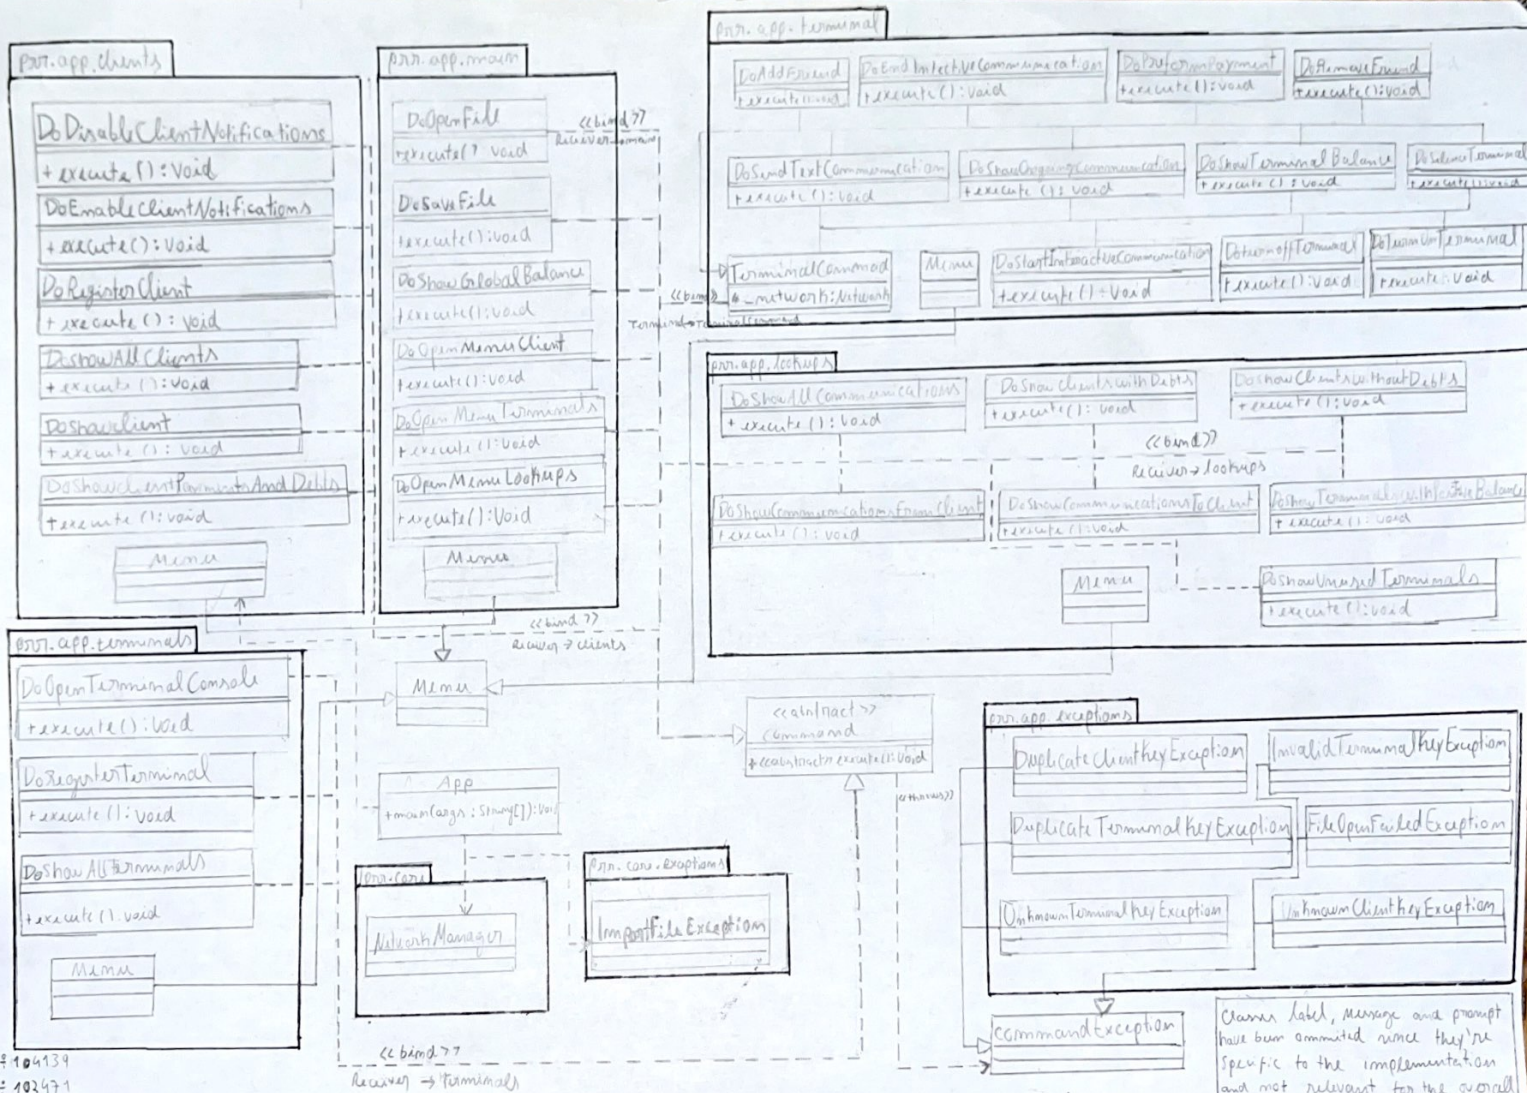 prr.app.clients
DoDisableClientNotifications
+ execute(): Void
DoEnableClientNotifications
+ execute(): Void
DoRegisterClient
+ execute(): void
DoShowAllClients
+ execute(): Void
DoShowClient
+ execute(): Void
DoShowClientPaymentsAndDebts
+ execute(): void
Menu
prr.app.main
DoOpenFile
+execute() void
DoSaveFile
+execute():void
DoShowGlobalBalance
+execute(): void
DoOpenMenuClient
+execute(): void
DoOpenMenuTerminals
+execute(): void
DoOpenMenuLookups
+execute():Void
Menu
<<bind>>
prr.app.terminal
DoAddFriend
+execute():void
DoEndIntectiveCommunication
+execute(): Void
DoPreformPayment
+execute(): void
DoRemoveFriend
+execute():void
DoSendTextCommunication
+execute(): void
DoShowOngoingCommunication
+execute(): void
DoShowTerminalBalance
+execute(): void
DoSilenceTerminal
+execute():void
TerminalCommad
_network:Network
Menu
DoStartInteractiveCommunication
+execute(): Void
DoTurnoffTerminal
+execute(): Void
DoTurnOnTerminal
+execute(): Void
<<bind>>
prr.app.lookups
DoShowAllCommunications
+execute(): void
DoShowClientswithDebts
+execute(): void
DoShowClientswithoutDebts
+execute(): void
<<bind>>
Receiver → lookups
DoShowCommunicationsFromClient
+execute(): void
DoShowCommunicationsToClient
+execute(): void
+execute(): void
Menu
DoShowUnusedTerminals
+execute(): void
<<bind>>
Receiver → clients
prr.app.terminals
DoOpenTerminalConsole
+execute(): Void
DoRegisterTerminal
+execute(): Void
DoShowAllTerminals
+execute(): void
Menu
Menu
App
+main(args: String[]):Void
<<abstract>>
command
+<<abstract>> execute(): Void
<<throws>>
prr.core
NetworkManager
prr.core.exceptions
ImportFileException
<<bind>>
Receiver → Terminals
prr.app.exceptions
DuplicateClientKeyException
InvalidTerminalKeyException
DuplicateTerminalKeyException
FileOpenFailedException
UnknownTerminalKeyException
UnknownClientKeyException
commandException
Classes label, message and prompt
have been ommited since they're
specific to the implementation
and not relevant for the overall
104139
102471